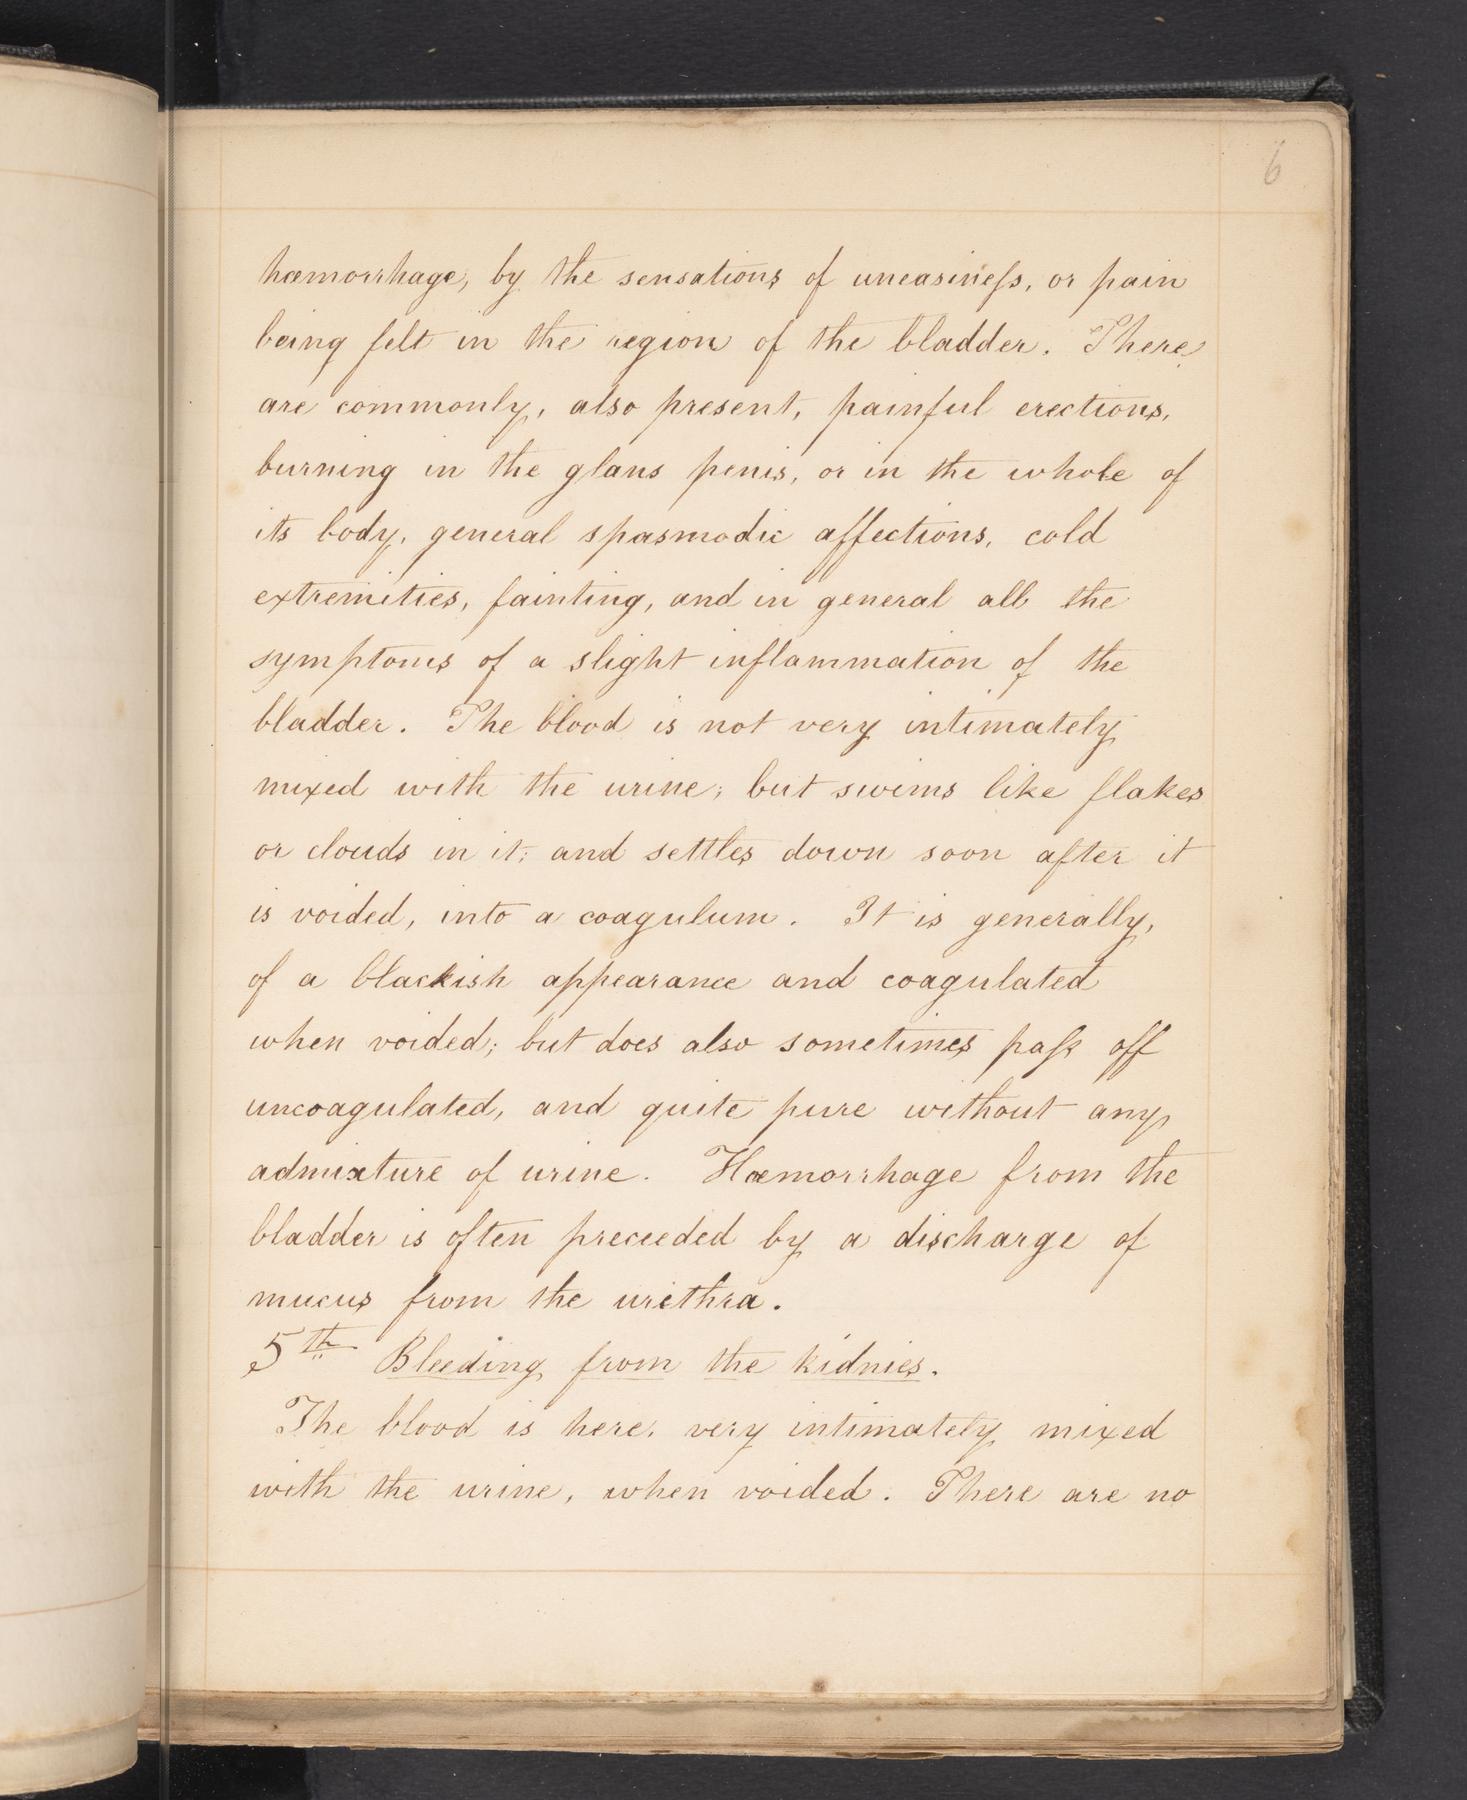 6
hæmorrhage, by the sensations of uneasineſs, or pain
being felt in the region of the bladder. There
are commonly, also present, painful erections,
burning in the glans penis, or in the whole of
its body, general spasmodic affections, cold
extremities, fainting, and in general all the
symptoms of a slight inflammation of the
bladder. The blood is not very intimately
mixed with the urine; but swims like flakes
or clouds in it; and settles down soon after it
is voided, into a coagulum. It is generally,
of a blackish appearance and coagulated
when voided; but does also sometimes paſs off
uncoagulated, and quite pure without any
admixture of urine. Hæmorrhage from the
bladder is often preceeded by a discharge of
mucus from the urethra.
5th Bleeding from the kidnies.
The blood is here, very intimately mixed
with the urine, when voided. There are no